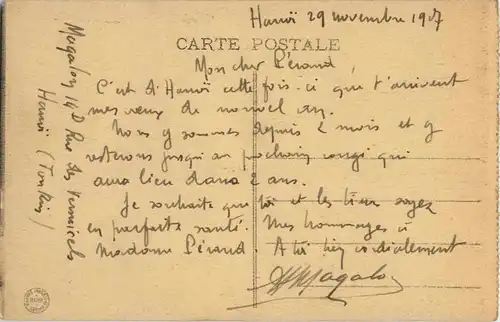 Hanoï 29 novembre 1917
CARTE POSTALE
Mon cher Pérand,
C'est d'Hanoï cette fois-ci que t'arrivent
mes vœux de nouvel an.
Nous y sommes depuis 2 mois et y
resterons jusqu'au prochain congé qui
aura lieu dans 2 ans.
Je souhaite que toi et les tiens soyez
en parfaite santé. Mes hommages à
Madame Pérand. A toi bien cordialement
Magalon
Magalon 14D Rue des Vermicels
Hanoï (Tonkin)